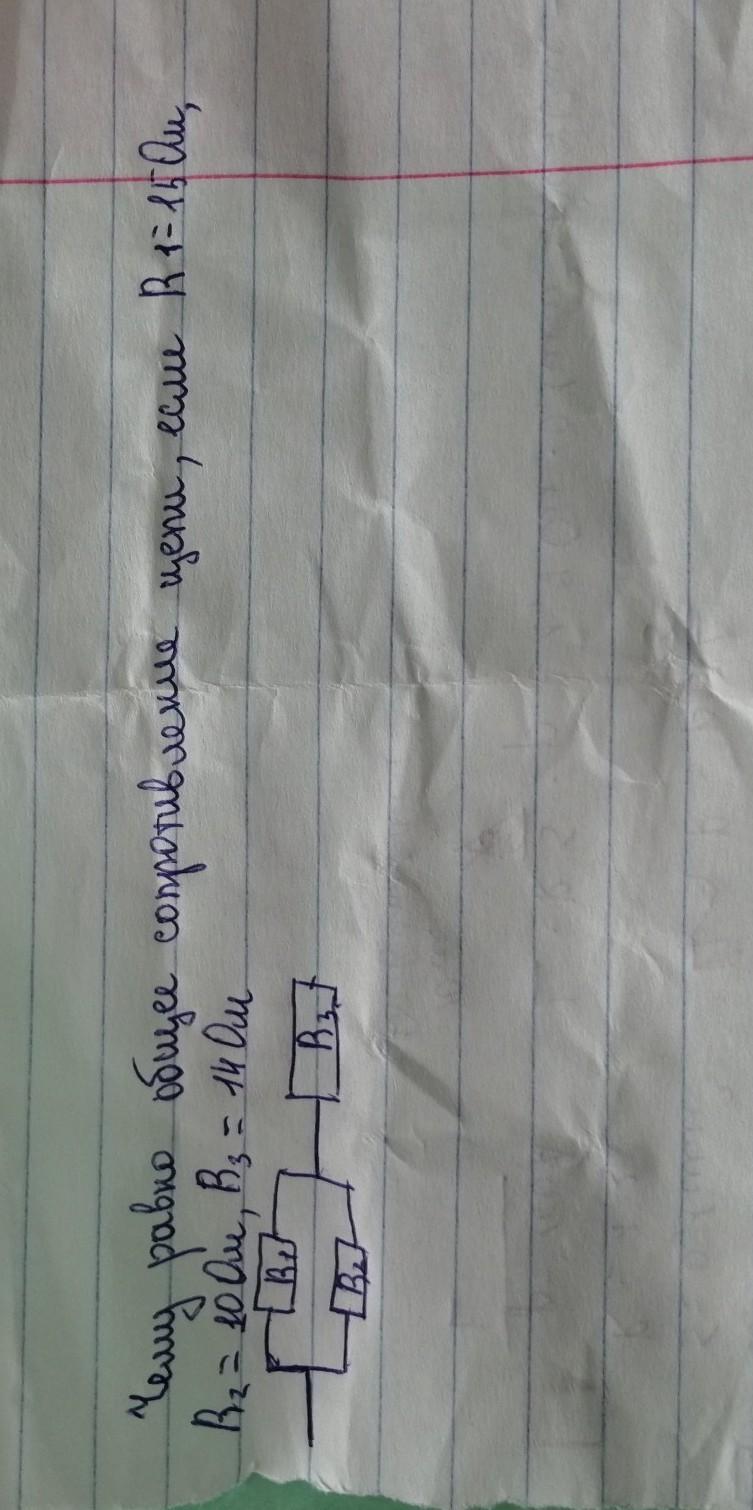 Чему равно общее сопротивление цепи, если R1=15 Ом,
R2=10 Ом, R3=14 Ом
R1
R2
R3